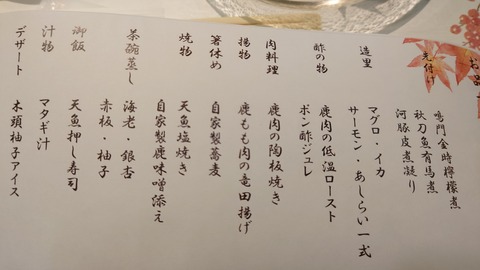 お品
先付け
鳴門金時檸檬煮
秋刀魚有馬煮
河豚皮煮凝り
造里
マグロ・イカ
サーモン・あしらい一式
酢の物
鹿肉の低温ロースト
ポン酢ジュレ
肉料理
鹿肉の陶板焼き
揚物
鹿もも肉の竜田揚げ
箸休め
自家製蕎麦
焼物
天魚塩焼き
自家製鹿味噌添え
茶碗蒸し
海老・銀杏
赤板・柚子
御飯
天魚押し寿司
汁物
マタギ汁
デザート
木頭柚子アイス